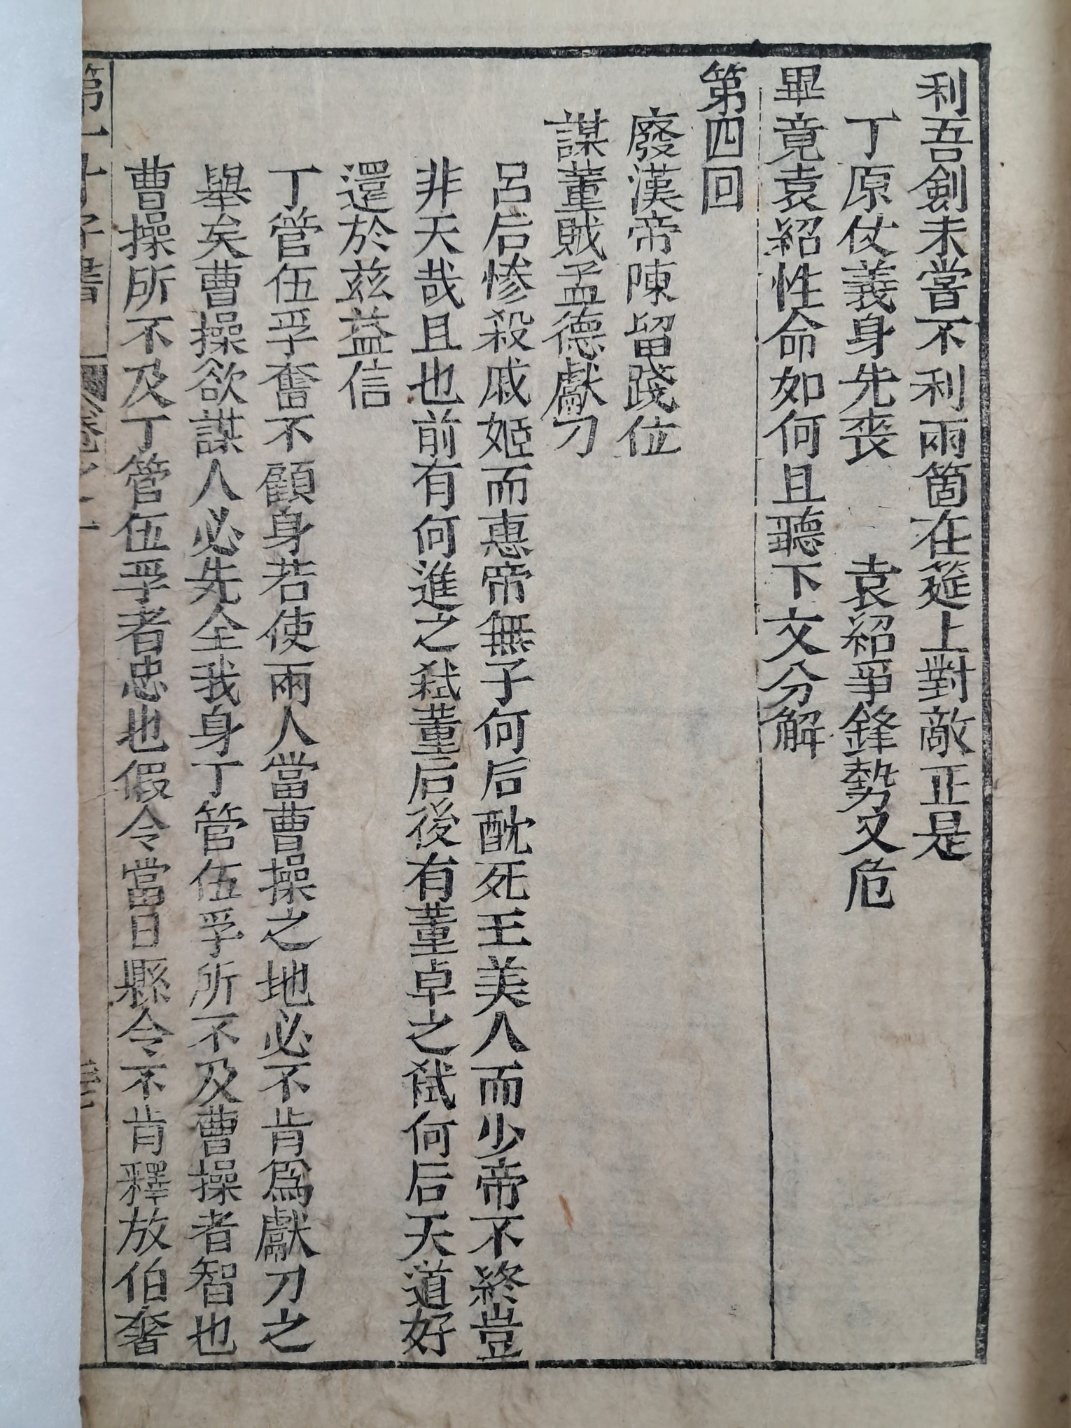 利吾劍未嘗不利兩箇在筵上對敵正是
丁原仗義身先喪　袁紹爭鋒勢又危
畢竟袁紹性命如何且聽下文分解
第四回
廢漢帝陳留踐位
謀董賊孟德獻刀
呂后慘殺戚姬而惠帝無子何后酖死王美人而少帝不終豈
非天哉且也前有何進之弒董后後有董卓之弒何后天道好
還於茲益信
丁管伍孚奮不顧身若使兩人當曹操之地必不肯為獻刀之
舉矣曹操欲謀人必先全我身丁管伍孚所不及曹操者智也
曹操所不及丁管伍孚者忠也假令當日縣令不肯釋放伯奢
第一才子書　卷之一